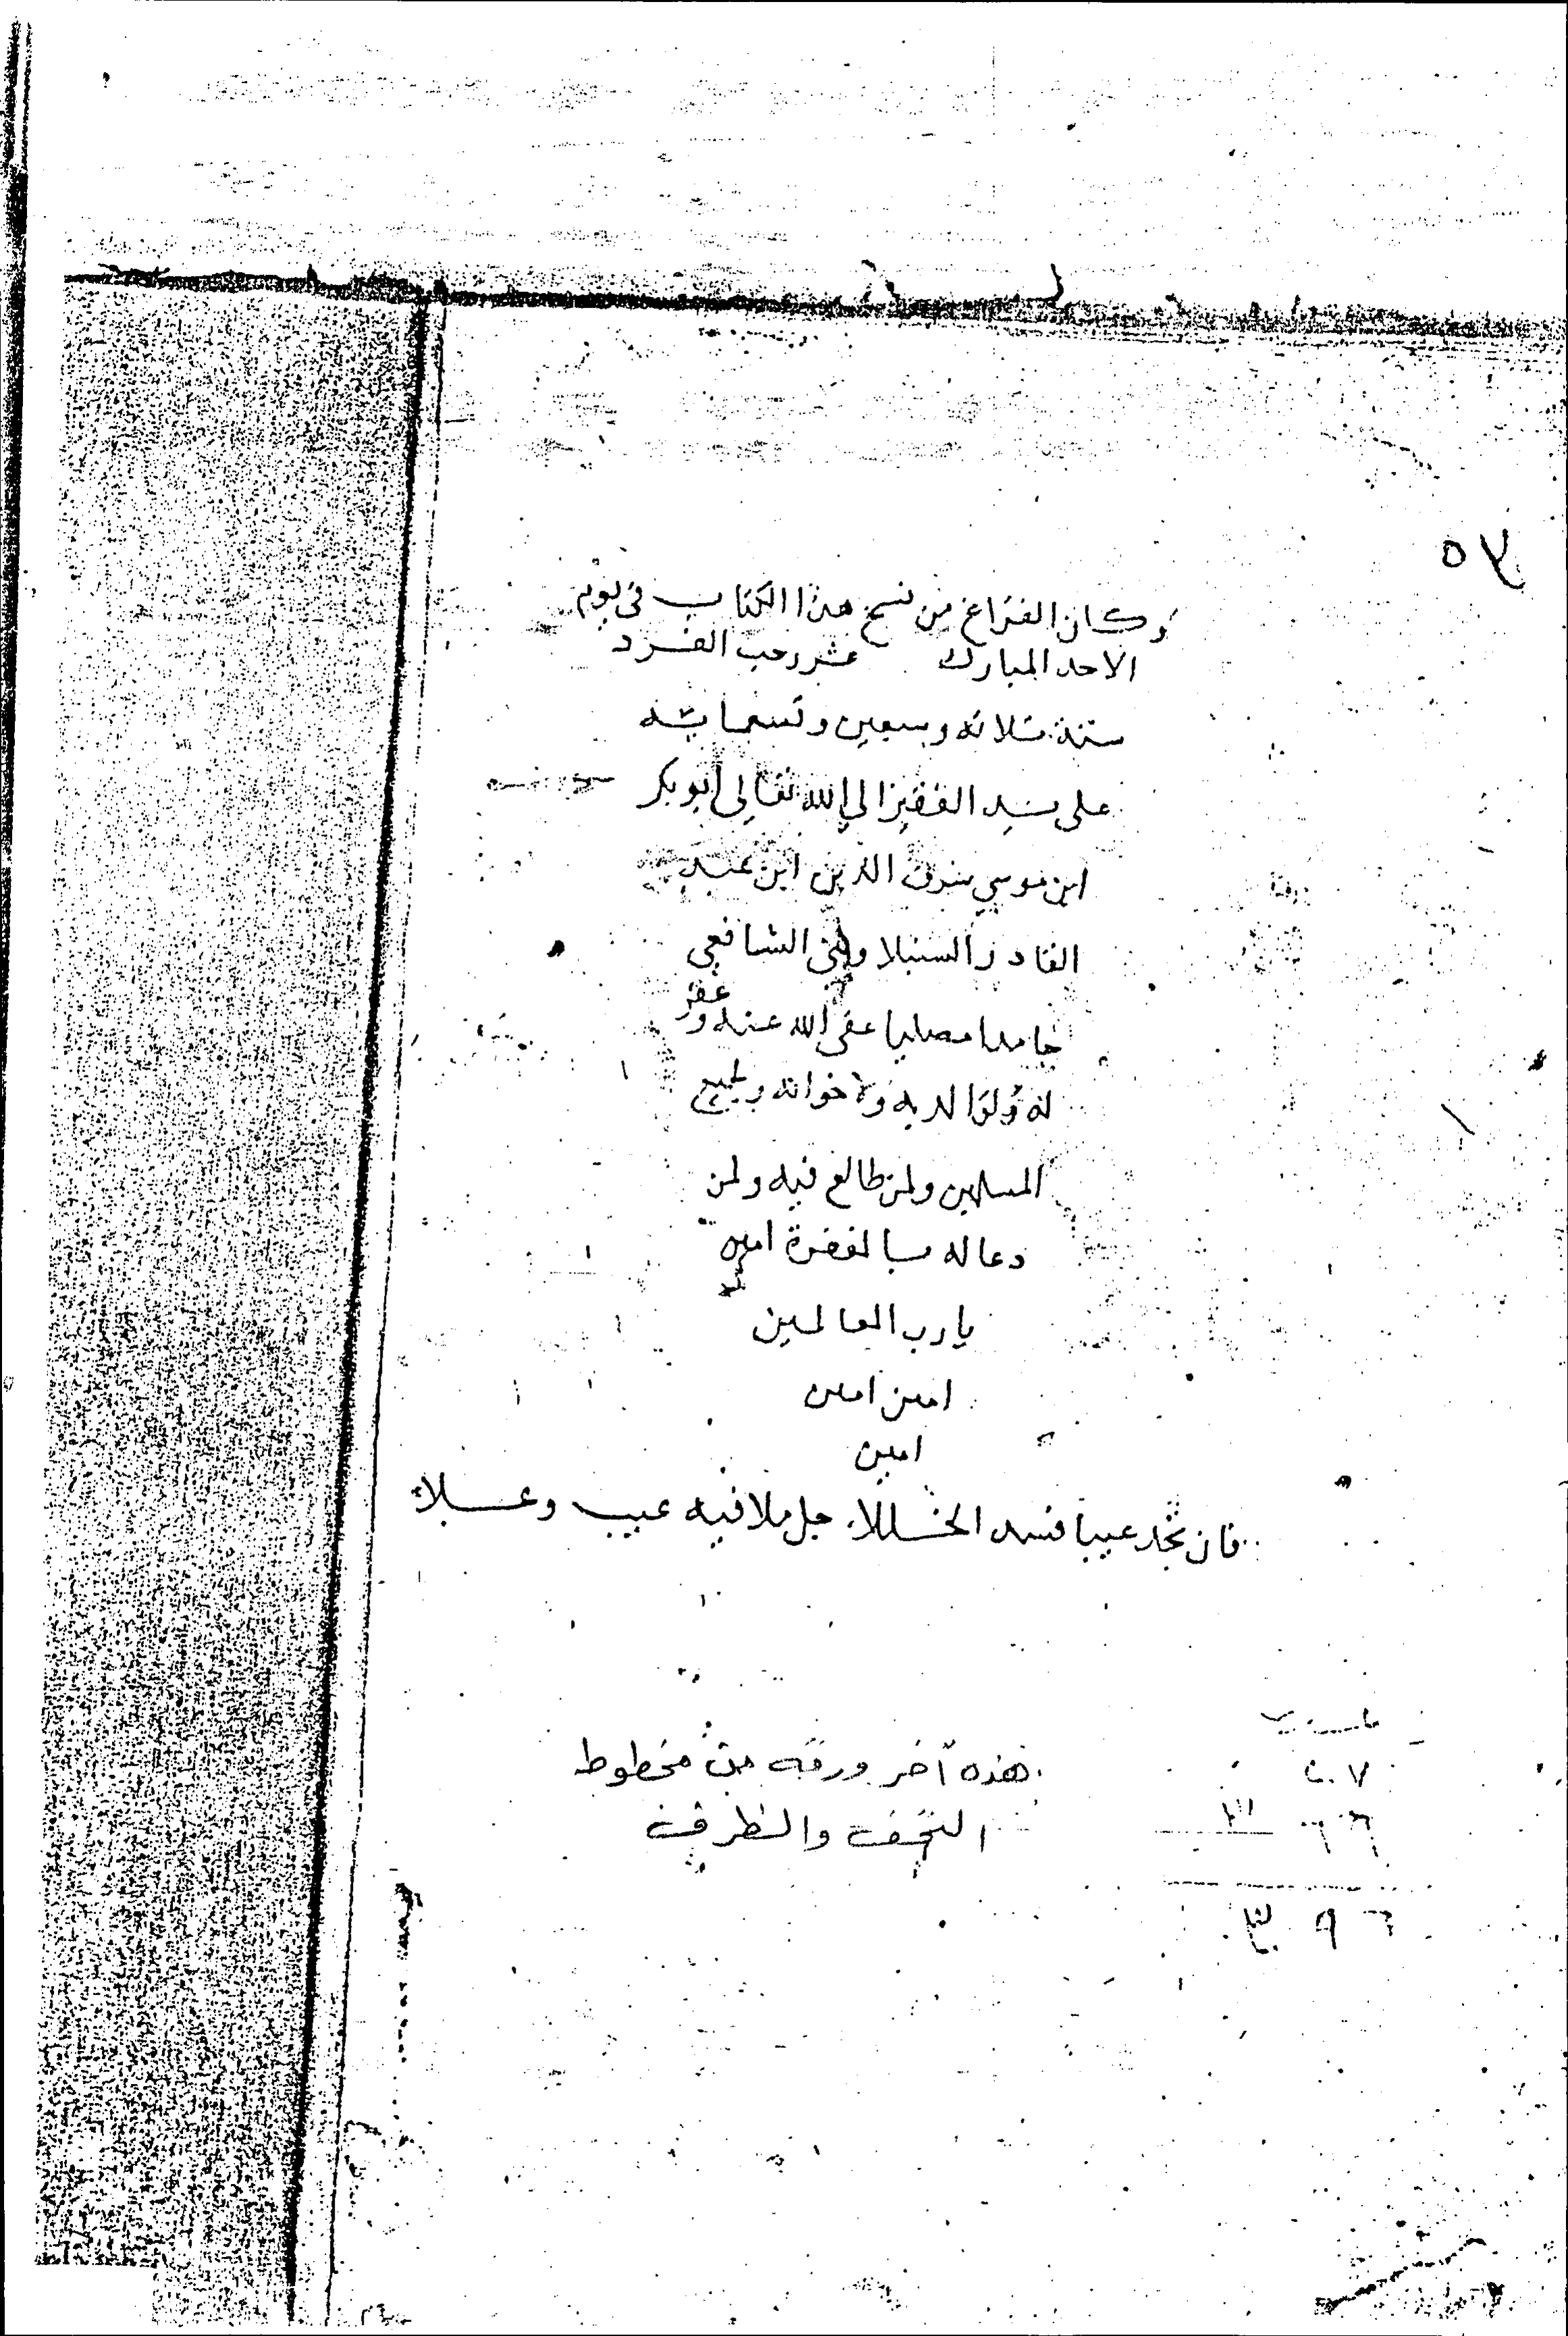 وكان الفراغ من نسخ هذا الكتاب في يوم
الاحد المبارك عشر رجب الفرد
سنة ثلاثه وسبعين وتسعمائة
على يد الفقير الى الله تعالى ابو بكر
ابن موسى شرف الدين ابن عبد
القادر السنبلاويني الشافعي
حامدا مصليا عفى الله عنه وغفر
له ولوالديه ولاخوانه ولجميع
المسلمين ولمن طالع فيه ولمن
دعا له بالمغفرة امين
يا رب العالمين
امين امين
امين
فان تجد عيبا فسد الخللا جل من لا فيه عيب وعلا
هذه آخر ورقه من مخطوط
التحف والظرف